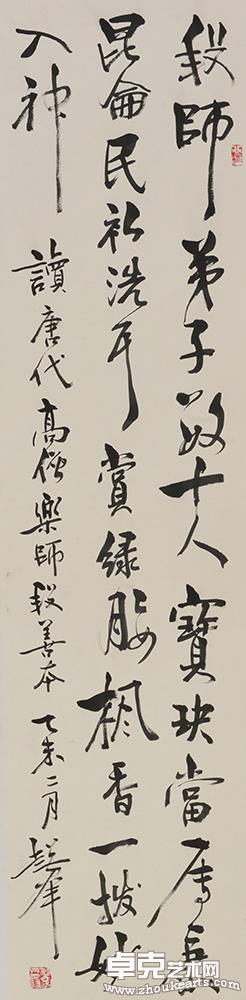 段師弟子數十人寶玦當
昆侖民洗耳賞綠腰楓香一撥妙
入神
讀唐代高僧樂師段善本乙未二月
卓克艺术网
www.zhoukearts.com